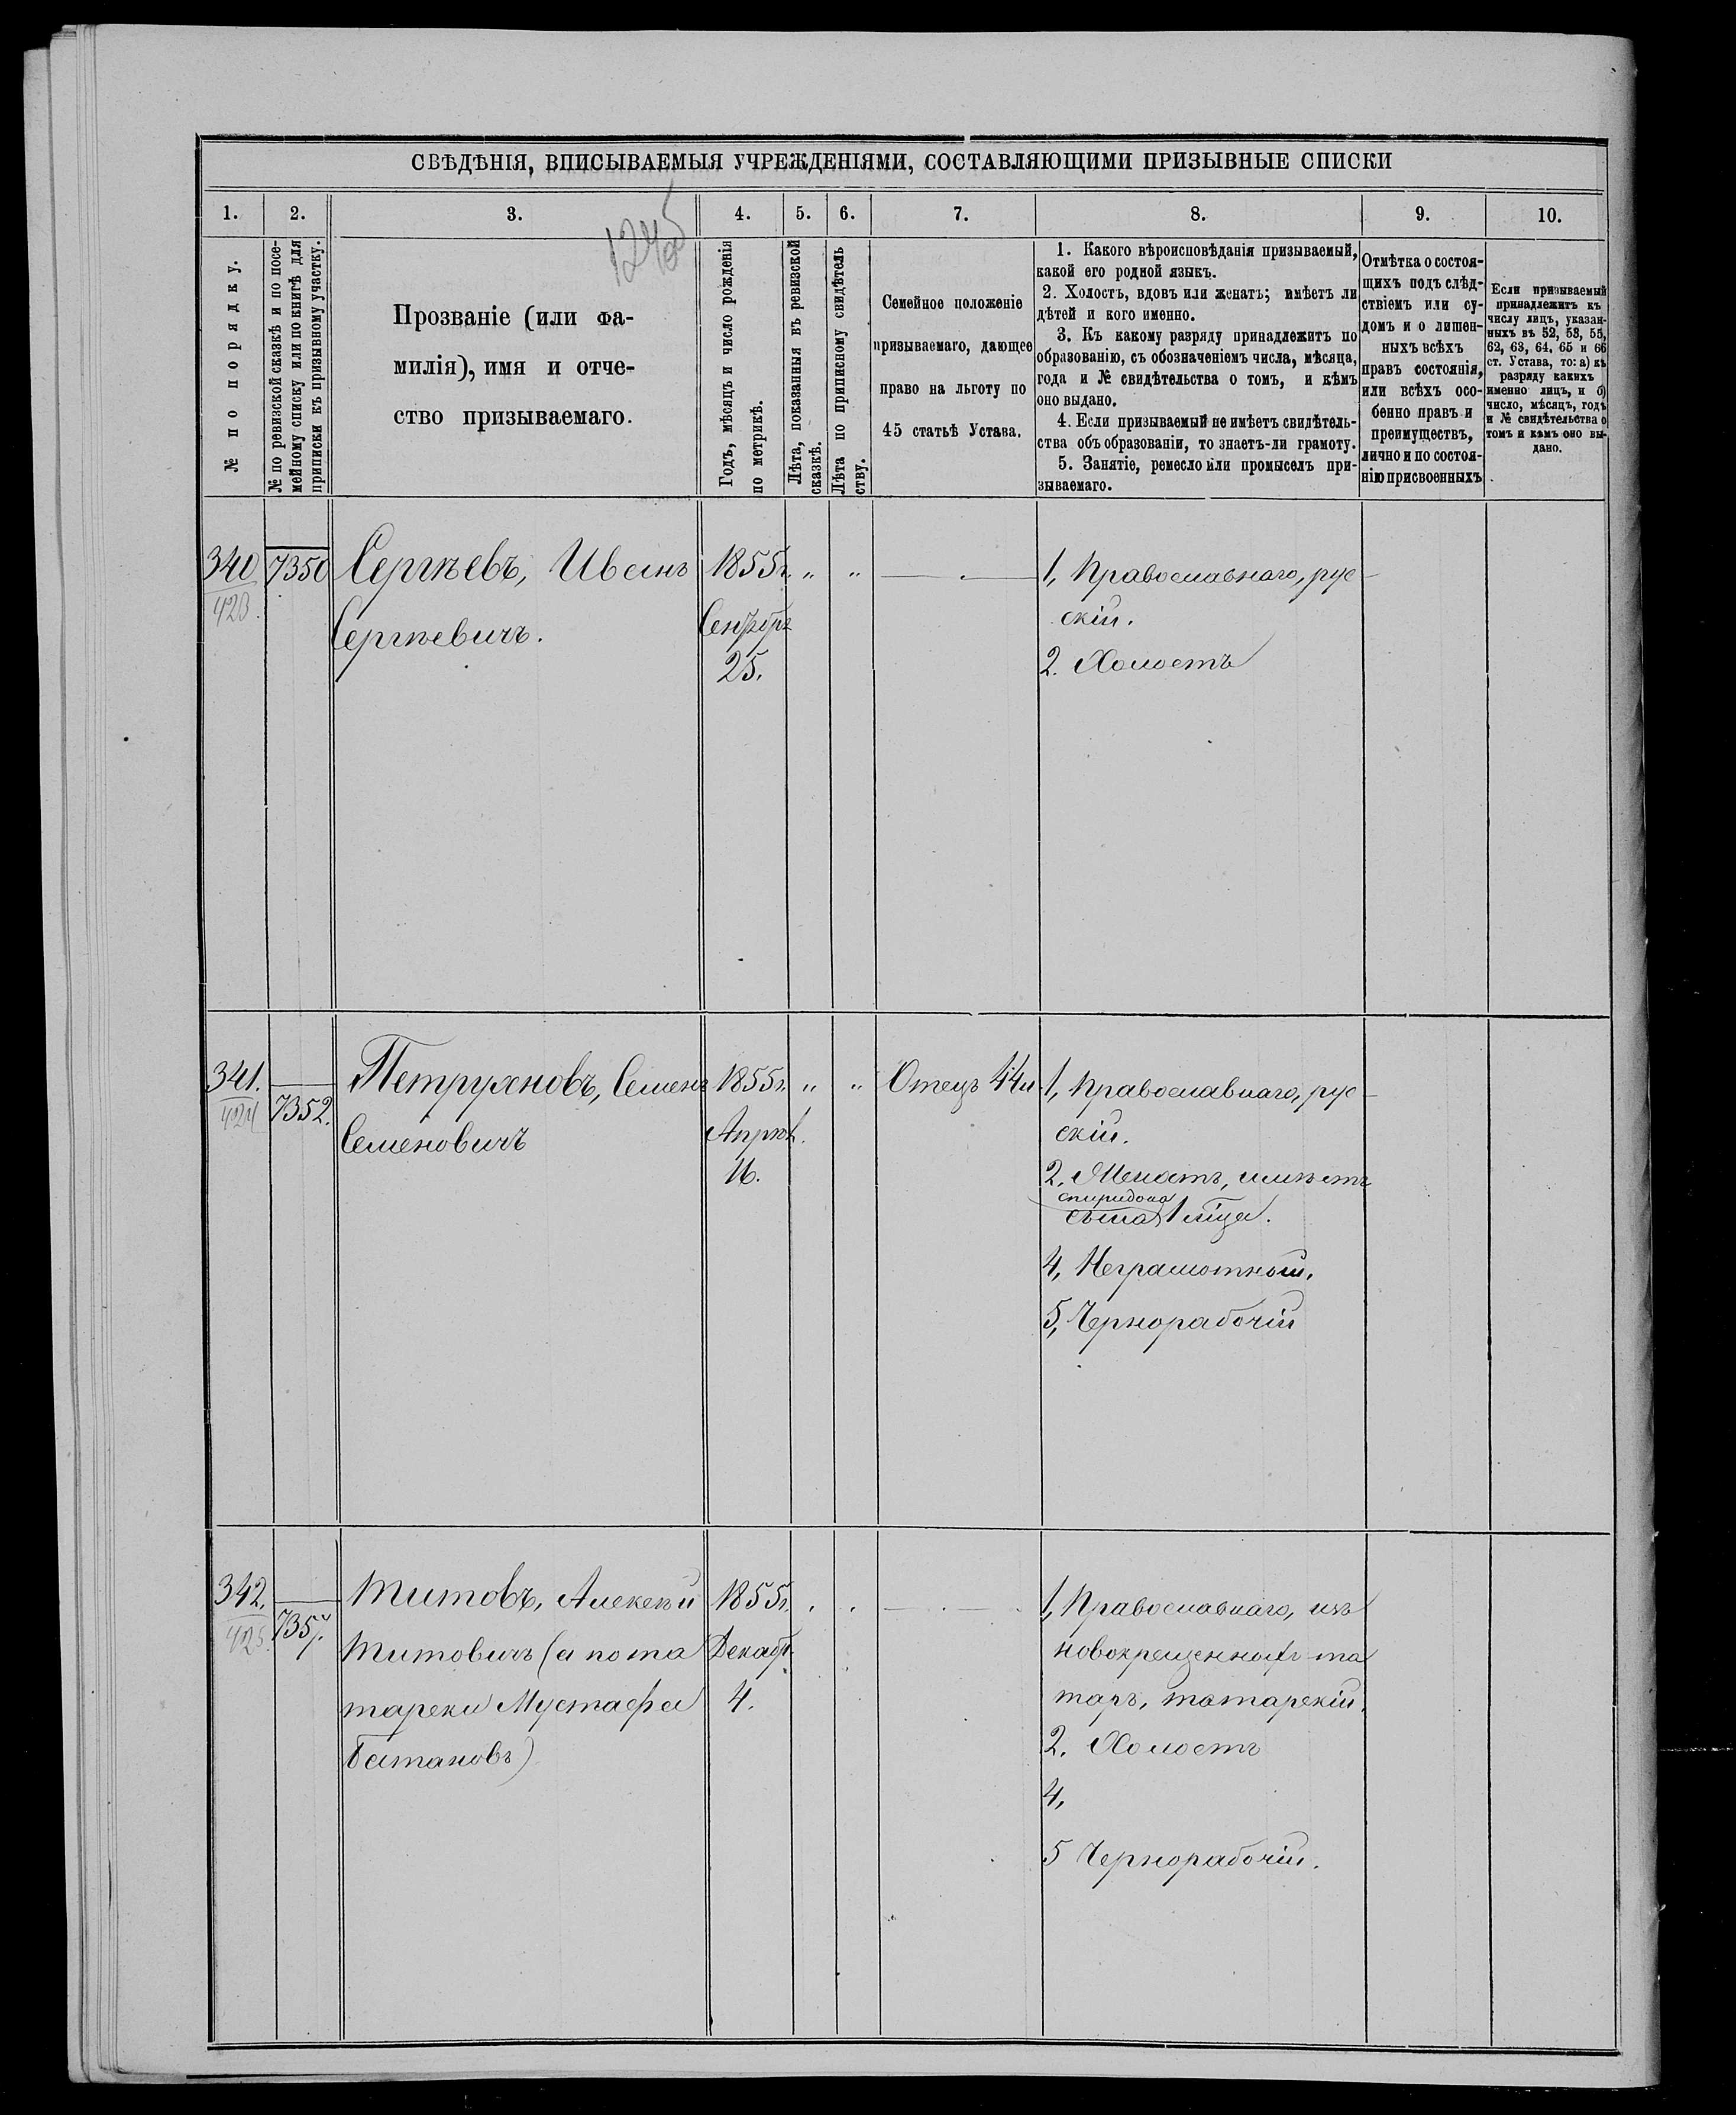 СВѢДѢНІЯ, ВПИСЫВАЕМЫЯ УЧРЕЖДЕНІЯМИ, СОСТАВЛЯЮЩИМИ ПРИЗЫВНЫЕ СПИСКИ
1. 2. 3. 4. 5. 6. 7. 8. 9. 10.
№ по порядку.
№ по ревизской сказкѣ и по посе-
мейному списку или по книгѣ для
приписки къ призывному участку.
Прозваніе (или фа-
милія), имя и отче-
ство призываемаго.
Годъ, мѣсяцъ и число рожденія
по метрикѣ.
Лѣта, показанныя въ ревизской
сказкѣ.
Лѣта по приписному свидѣтель
ству.
Семейное положеніе
призываемаго, дающее
право на льготу по
45 статьѣ Устава.
1. Какого вѣроисповѣданія призываемый,
какой его родной языкъ.
2. Холостъ, вдовъ или женатъ; имѣетъ ли
дѣтей и кого именно.
3. Къ какому разряду принадлежитъ по
образованію, съ обозначеніемъ числа, мѣсяца,
года и № свидѣтельства о томъ, и кѣмъ
оно выдано.
4. Если призываемый не имѣетъ свидѣтель-
ства объ образованіи, то знаетъ-ли грамоту.
5. Занятіе, ремесло или промыселъ при-
зываемаго.
Отмѣтка о состоя-
щихъ подъ слѣд-
ствіемъ или су-
домъ и о лишен-
ныхъ всѣхъ
правъ состоянія,
или всѣхъ осо-
бенно правъ и
преимуществъ,
лично и по состоя-
нію присвоенныхъ
Если призываемый
принадлежитъ къ
числу лицъ, указан-
ныхъ въ 52, 53, 55,
62, 63, 64, 65 и 66
ст. Устава, то: а) къ
разряду какихъ
именно лицъ, и б)
число, мѣсяцъ, годъ
и № свидѣтельства о
томъ и кѣмъ оно вы-
дано.
340
423.
7350
Сергѣевъ, Иванъ
Сергѣевичъ.
1855г.
Сентября
25.
" "
1, Православнаго, рус-
скій.
2. Холостъ
341.
424
7352.
Петрухновъ, Семенъ
Семеновичъ
1855г.
Апрѣл.
16.
" "
Отецъ 44л
1, Православнаго, рус-
скій.
2. Женатъ, имѣетъ
спиридона
сына 1 мѣца.
4, Неграмотный.
5, Чернорабочій
342.
425.
7357.
Титовъ, Алексѣй
Титовичъ (а по та
тарски Мустафа
Батановъ)
1855г.
Декабр.
4.
1, Православнаго, изъ
новокрещенныхъ та
таръ, татарскій.
2. Холостъ
4,
5 Чернорабочій.